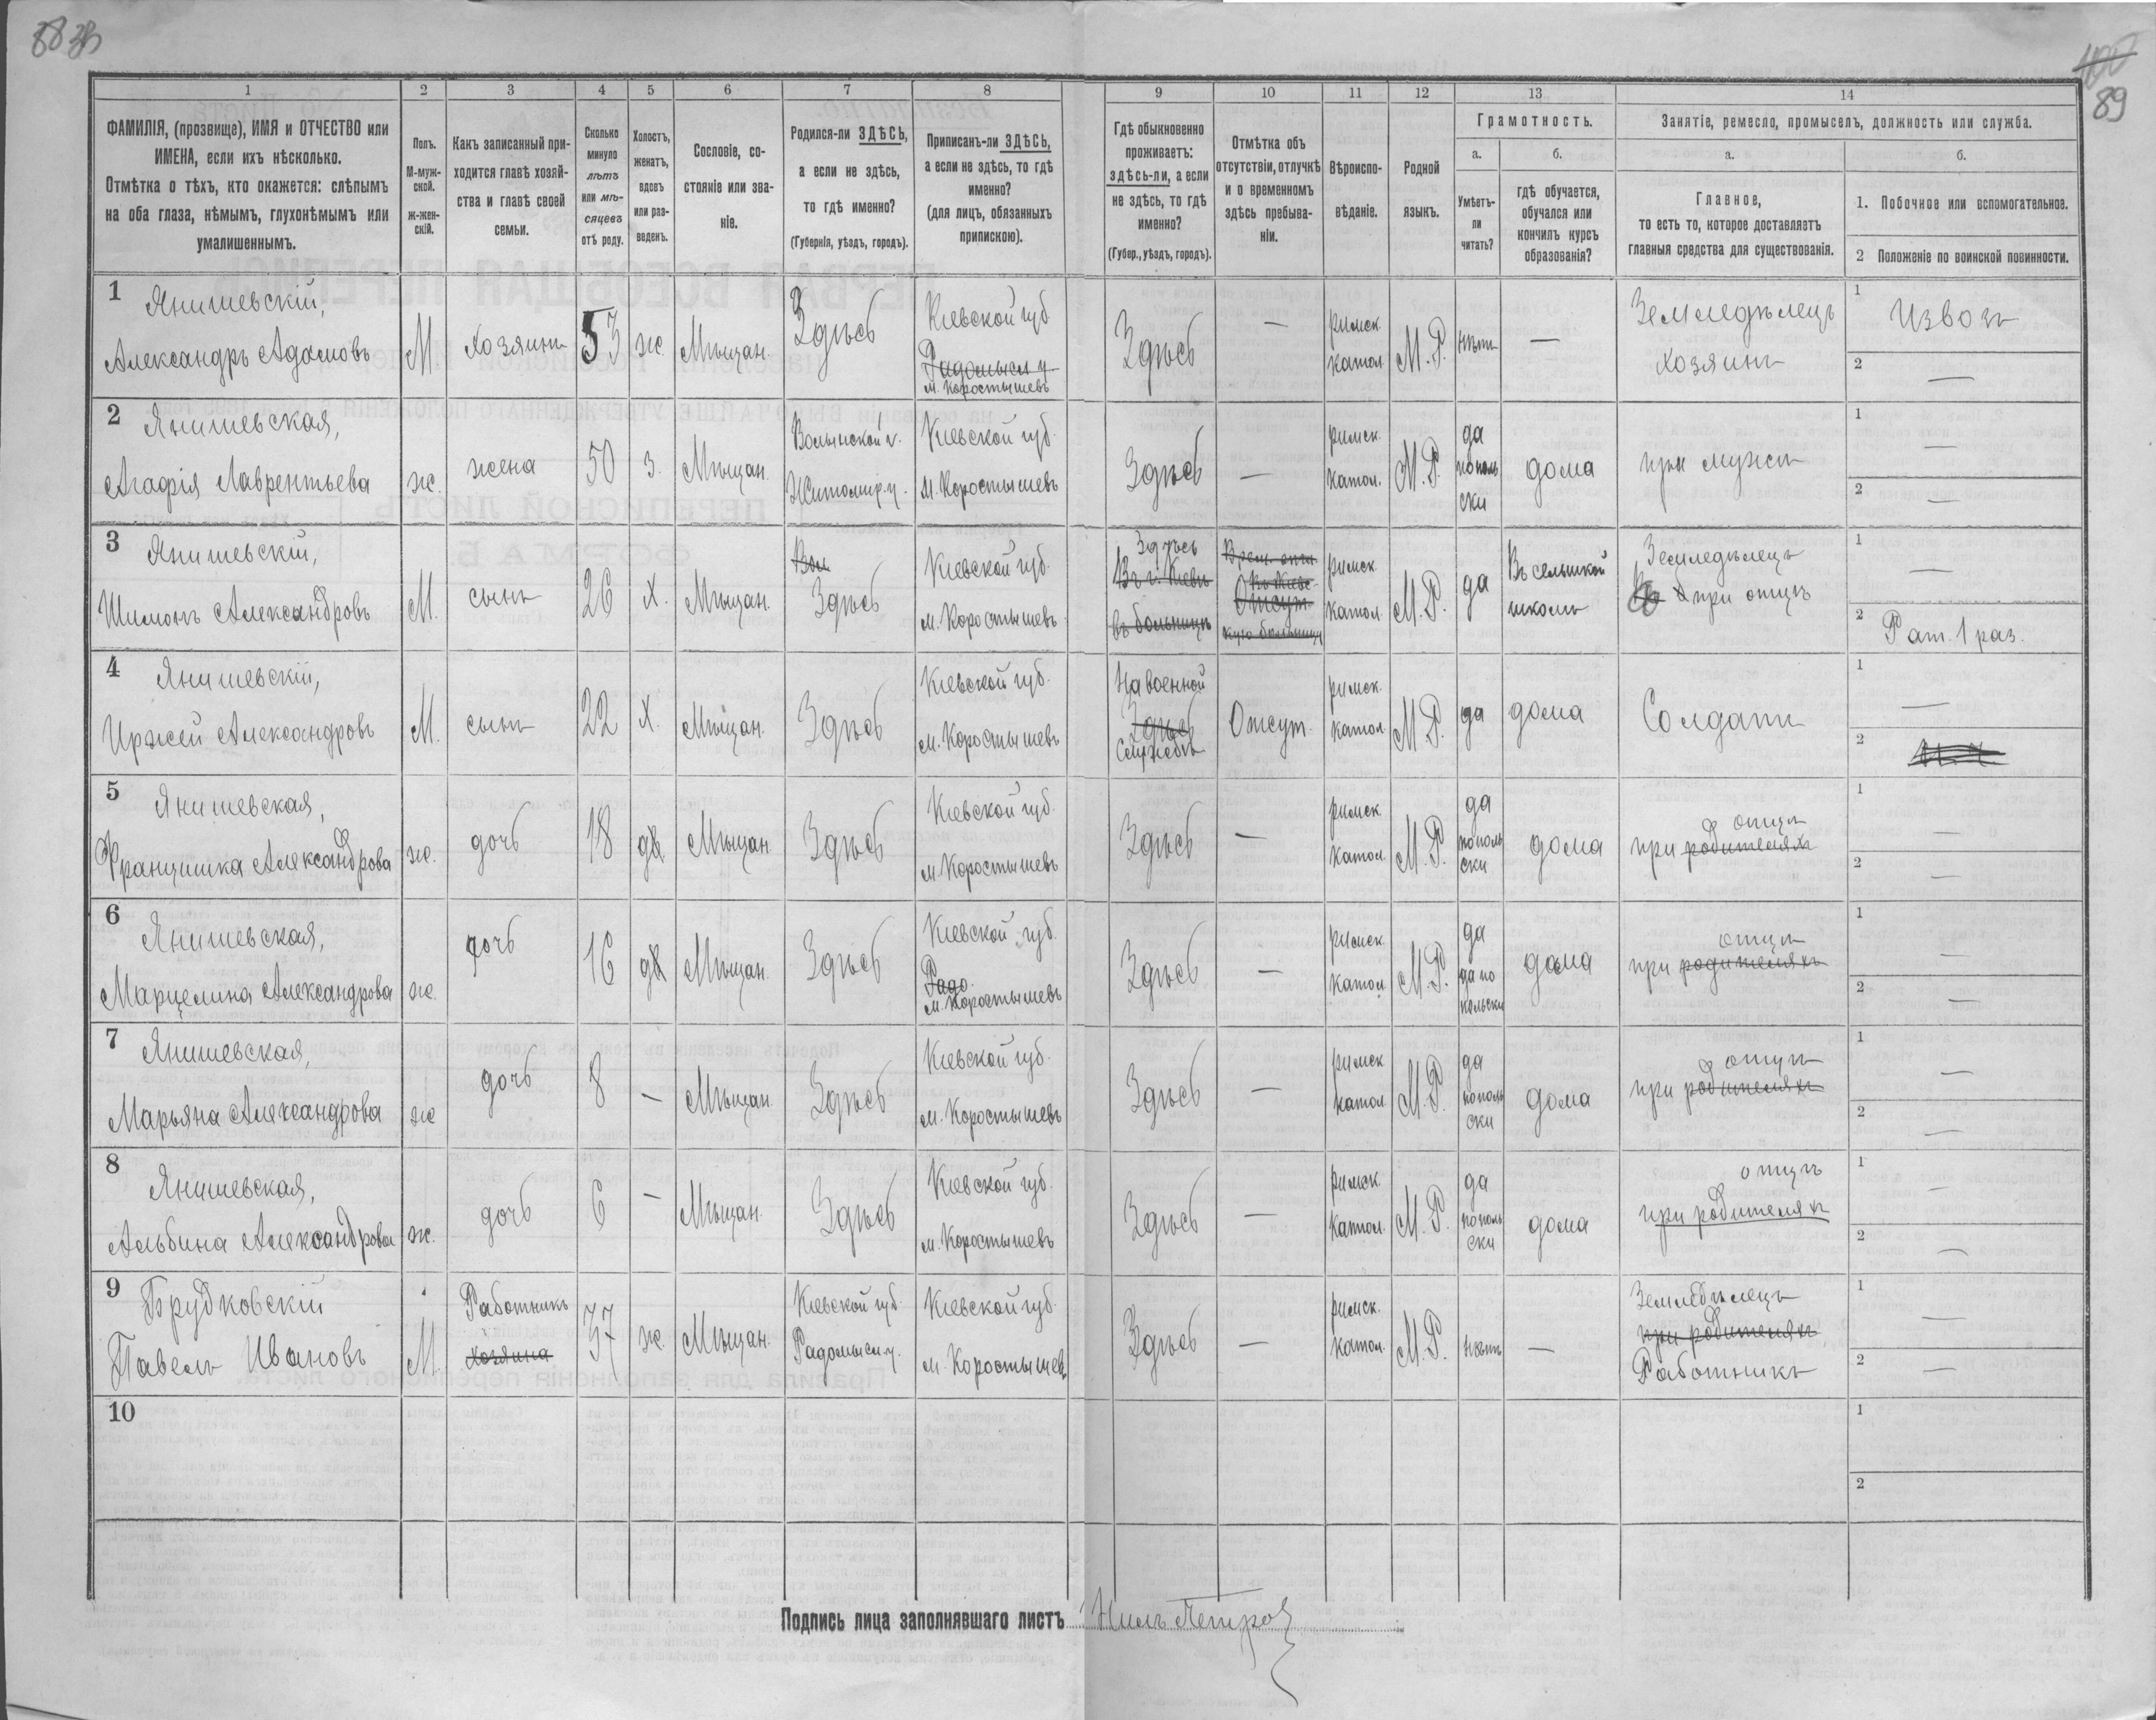 88 зв
400
89
1 2 3 4 5 6 7 8 9 10 11 12 13 14
ФАМИЛІЯ, (прозвище), ИМЯ и ОТЧЕСТВО или
ИМЕНА, если ихъ нѣсколько.
Отмѣтка о тѣхъ, кто окажется: слѣпымъ
на оба глаза, нѣмымъ, глухонѣмымъ или
умалишеннымъ.
Полъ.
М-муж-
ской.
ж-жен-
скій.
Какъ записанный при-
ходится главѣ хозяй-
ства и главѣ своей
семьи.
Сколько
минуло
лѣтъ
или мѣ-
сяцевъ
отъ роду.
Холостъ,
женатъ,
вдовъ
или раз-
веденъ.
Сословіе, со-
стояніе или зва-
ніе.
Родился-ли ЗДѢСЬ,
а если не здѣсь,
то гдѣ именно?
(Губернія, уѣздъ, городъ).
Приписанъ-ли ЗДѢСЬ,
а если не здѣсь, то гдѣ
именно?
(для лицъ, обязанныхъ
припискою).
Гдѣ обыкновенно
проживаетъ:
здѣсь-ли, а если
не здѣсь, то гдѣ
именно?
(Губер., уѣздъ, городъ).
Отмѣтка объ
отсутствіи, отлучкѣ
и о временномъ
здѣсь пребыва-
ніи.
Вѣроиспо-
вѣданіе.
Родной
языкъ.
Грамотность.
а.
Умѣетъ-
ли
читать?
б.
гдѣ обучается,
обучался или
кончилъ курсъ
образованія?
Занятіе, ремесло, промыселъ, должность или служба.
а.
Главное,
то есть то, которое доставляетъ
главныя средства для существованія.
б.
1. Побочное или вспомогательное.
2 Положеніе по воинской повинности.
1
Янишевскій,
Александръ Адамовъ
М
Хозяинъ
53
ж.
Мѣщан.
Здѣсь
Кіевской губ
Радомысл у
м. Коростышевъ
Здѣсь
—
римск.
катол.
М. Р.
нѣтъ
—
Земледѣлецъ
хозяинъ
1 Извозъ
2 —
2
Янишевская,
Агафія Лаврентьева
ж.
жена
50
з.
Мѣщан.
Волынской г.
Житомир. у.
Кіевской губ.
м. Коростышевъ
Здѣсь
—
римск.
катол.
М. Р.
да
пополь
ски
дома
при мужѣ
1 —
2 —
3
Янишевскій,
Шимонъ Александровъ
М.
сынъ
26
Х.
Мѣщан.
Вол
Здѣсь
Кіевской губ.
м. Коростышевъ.
Здѣсь
В г. Кіевѣ
въ больницѣ
Отсут.
римск.
катол.
М. Р.
да
Въ сельской
школѣ
Земледѣлецъ
при отцѣ
1 —
2 Рат. 1 раз.
4
Янишевскій,
Иржей Александровъ
М.
сынъ
22
Х.
Мѣщан.
Здѣсь
Кіевской губ.
м. Коростышевъ
На военной
Здѣсь
Службѣ
Отсут.
римск.
катол.
М. Р.
да
дома
Солдатъ
1 —
2
5
Янишевская,
Францишка Александрова
ж.
дочь
18
дв
Мѣщан.
Здѣсь
Кіевской губ.
м. Коростышевъ
Здѣсь
—
римск.
катол.
М. Р.
да
пополь
ски
дома
отцѣ
при родителяхъ
1 —
2 —
6
Янишевская,
Марцелина Александрова
ж.
дочь
16
дв
Мѣщан.
Здѣсь
Кіевской губ.
Радо.
м. Коростышевъ
Здѣсь
—
римск.
катол.
М. Р.
да
да по
польски
дома
отцѣ
при родителяхъ
1 —
2 —
7
Янишевская,
Марьяна Александрова
ж
дочь
8
—
Мѣщан.
Здѣсь
Кіевской губ.
м. Коростышевъ
Здѣсь
—
римск
катол.
М. Р.
да
пополь
ски
дома
отцѣ
при родителяхъ
1 —
2 —
8
Янишевская,
Альбина Александрова
ж.
дочь
6
—
Мѣщан.
Здѣсь
Кіевской губ.
м. Коростышевъ
Здѣсь
—
римск.
катол.
М. Р.
да
пополь
ски
дома
отцѣ
при родителяхъ
1 —
2 —
9
Брудковскій
Павелъ Ивановъ
М.
Работникъ
хозяина
37
ж.
Мѣщан.
Кіевской губ.
Радомысл. у.
Кіевской губ.
м. Коростышев.
Здѣсь
—
римск.
катол.
М. Р.
нѣтъ
—
Земледѣлецъ
при родителяхъ
Работникъ
1 —
2 —
10
1
2
Подпись лица заполнявшаго листъ Нилъ Петров